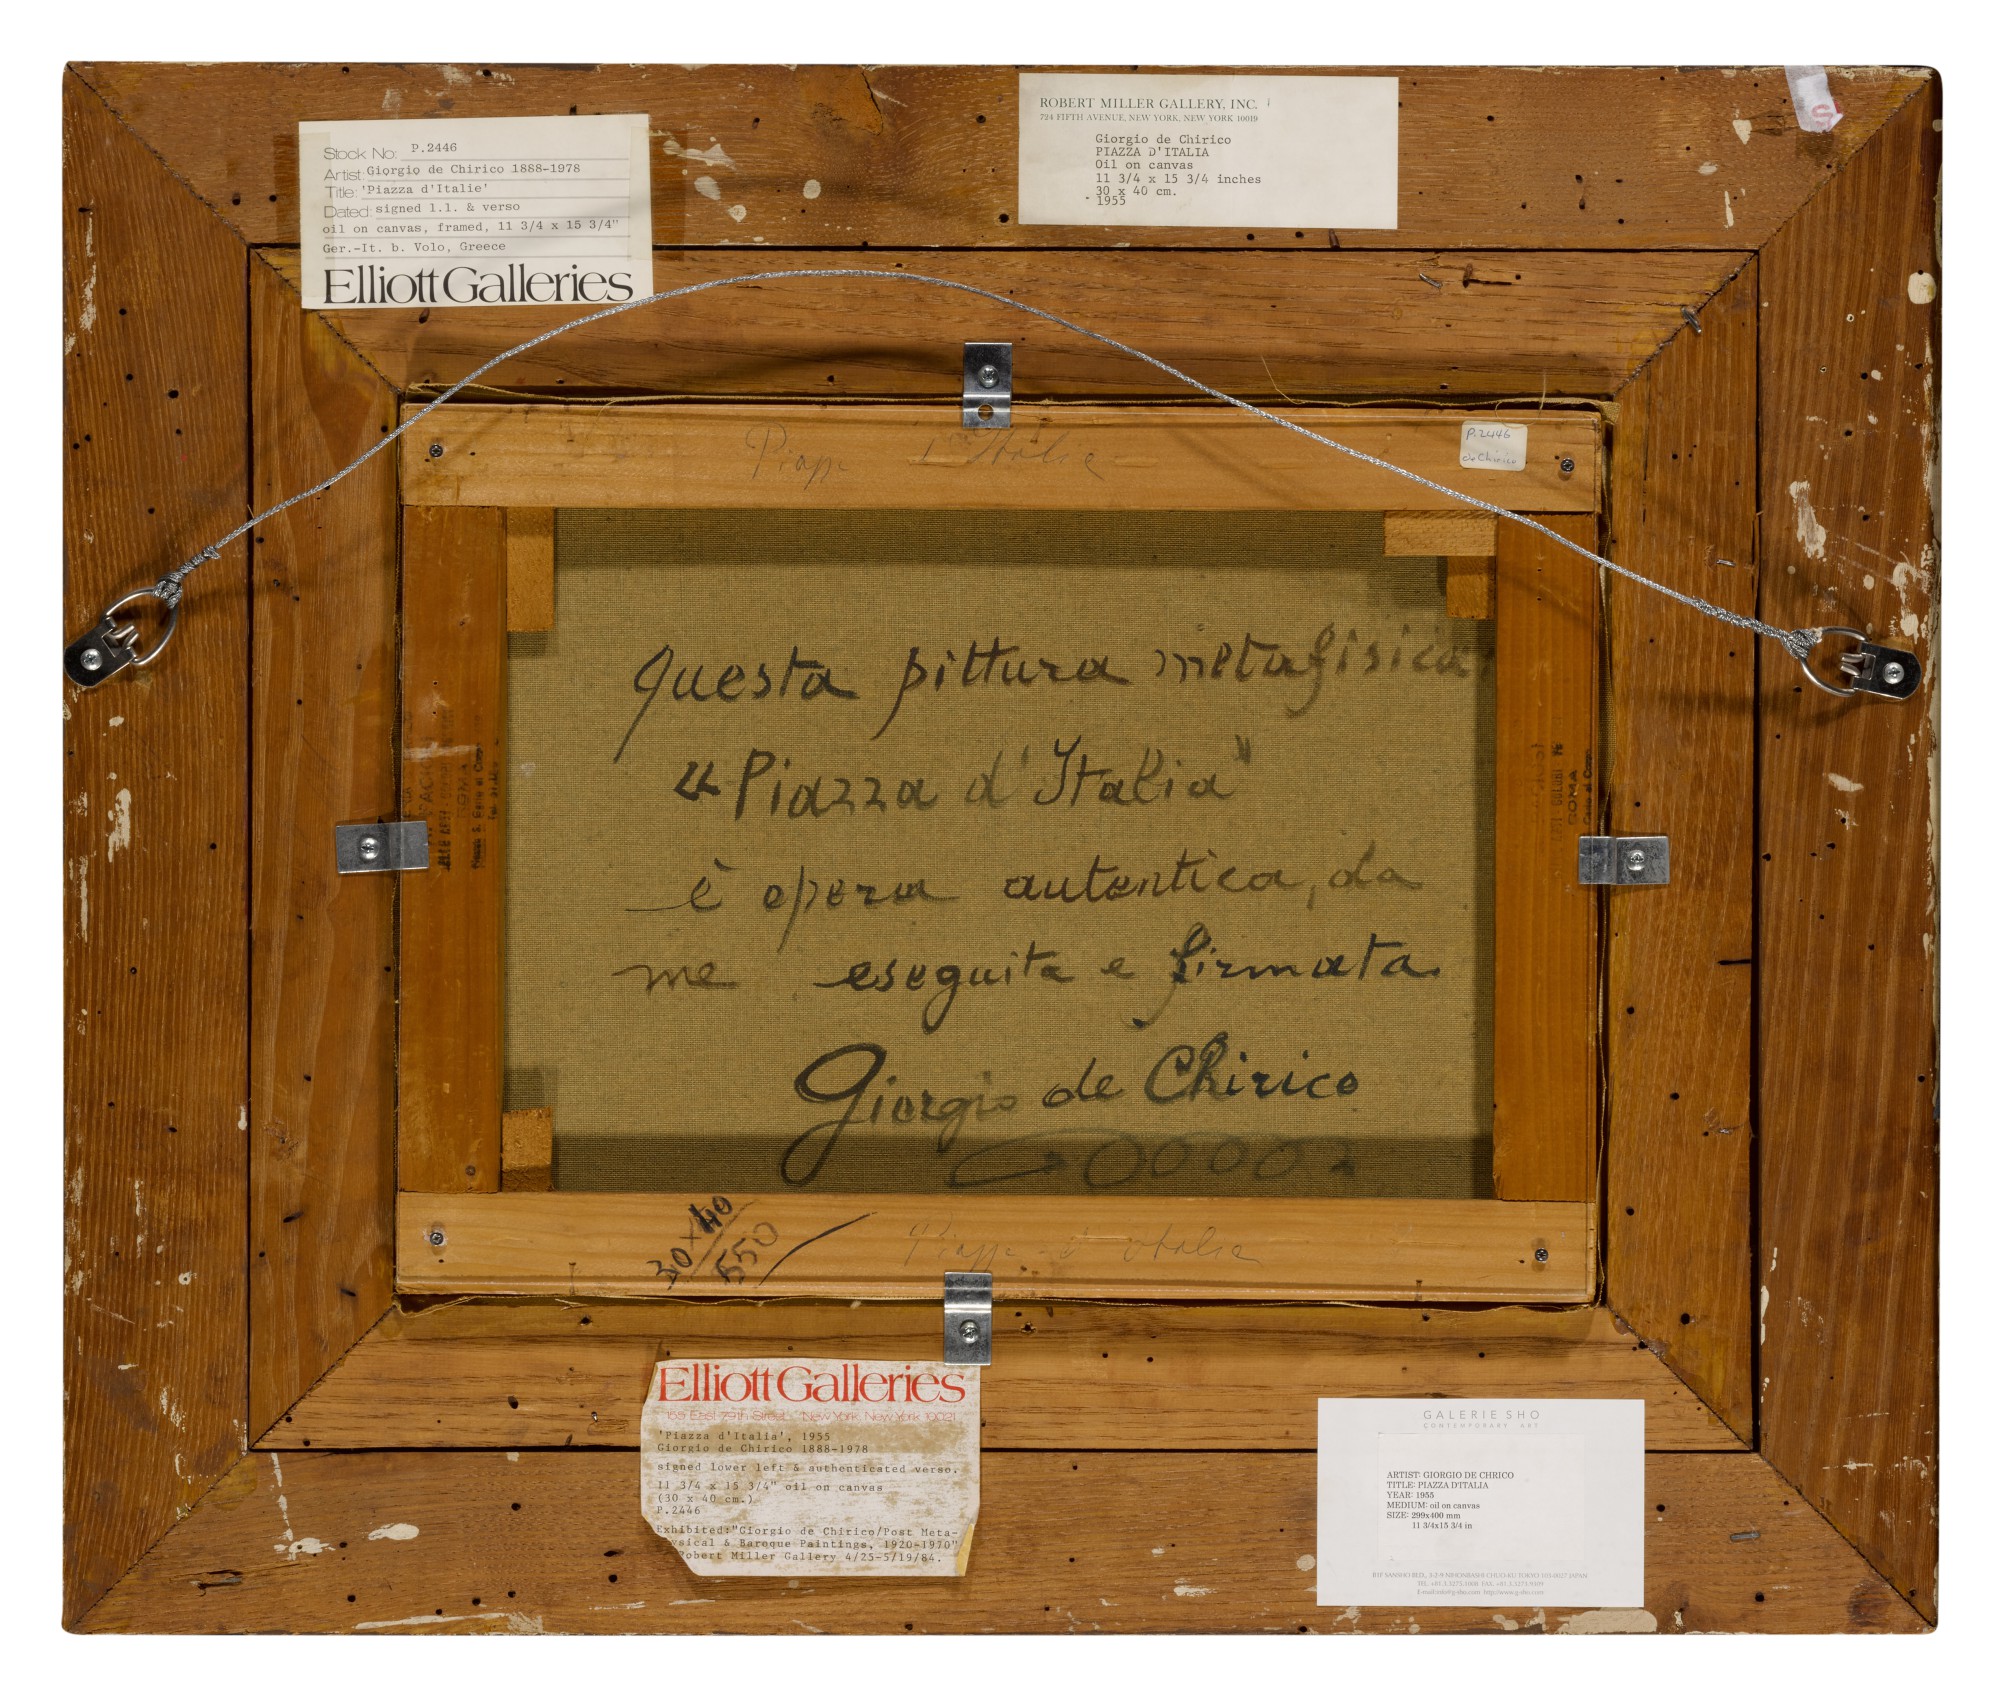 Stock No: P.2446
Artist: Giorgio de Chirico 1888-1978
Title: 'Piazza d'Italie'
Dated: signed l.l. & verso
oil on canvas, framed, 11 3/4 x 15 3/4"
Ger.-It. b. Volo, Greece
Elliott Galleries
ROBERT MILLER GALLERY, INC.
724 FIFTH AVENUE, NEW YORK, NEW YORK 10019
Giorgio de Chirico
PIAZZA D'ITALIA
Oil on canvas
11 3/4 x 15 3/4 inches
30 x 40 cm.
1955
P.2446
de Chirico
Questa pittura metafisica
"Piazza d'Italia"
è opera autentica, da
me eseguita e firmata
Giorgio de Chirico
ROMA
ROMA
30x40
550
Elliott Galleries
155 East 79th Street New York New York 10021
'Piazza d'Italia', 1955
Giorgio de Chirico 1888-1978
signed lower left & authenticated verso.
11 3/4 x 15 3/4" oil on canvas
(30 x 40 cm.)
P.2446
Exhibited:"Giorgio de Chirico/Post Meta-
ysical & Baroque Paintings, 1920-1970"
Robert Miller Gallery 4/25-5/19/84.
GALERIE SHO
CONTEMPORARY ART
ARTIST: GIORGIO DE CHRICO
TITLE: PIAZZA D'ITALIA
YEAR: 1955
MEDIUM: oil on canvas
SIZE: 299x400 mm
11 3/4x15 3/4 in
B1F SANSHO BLD., 3-2-9 NIHONBASHI CHUO-KU TOKYO 103-0027 JAPAN
TEL. +81.3.3275.1008 FAX. +81.3.3273.9309
E-mail:info@g-sho.com http://www.g-sho.com